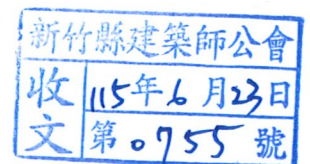 新竹縣建築師公會
收文
115年6月23日
第0755號